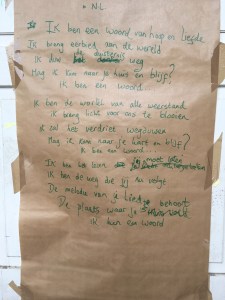 NL
Ik ben een woord van hoop en liefde
Ik breng eerbied aan de wereld
de duisternis
Ik duw weg
Mag ik kom naar je huis en blijf?
ik ben een woord
Ik ben de wortel van alle weerstand
ik breng licht voor ons te bloeien
ik zal het verdriet wegduwen
Mag ik kom naar je hart en blijf?
ik ben een woord
Ik ben het
ik ben de weg die jij volge
De melodie van je lied behoort
De plaats waar je
ik ben een woord